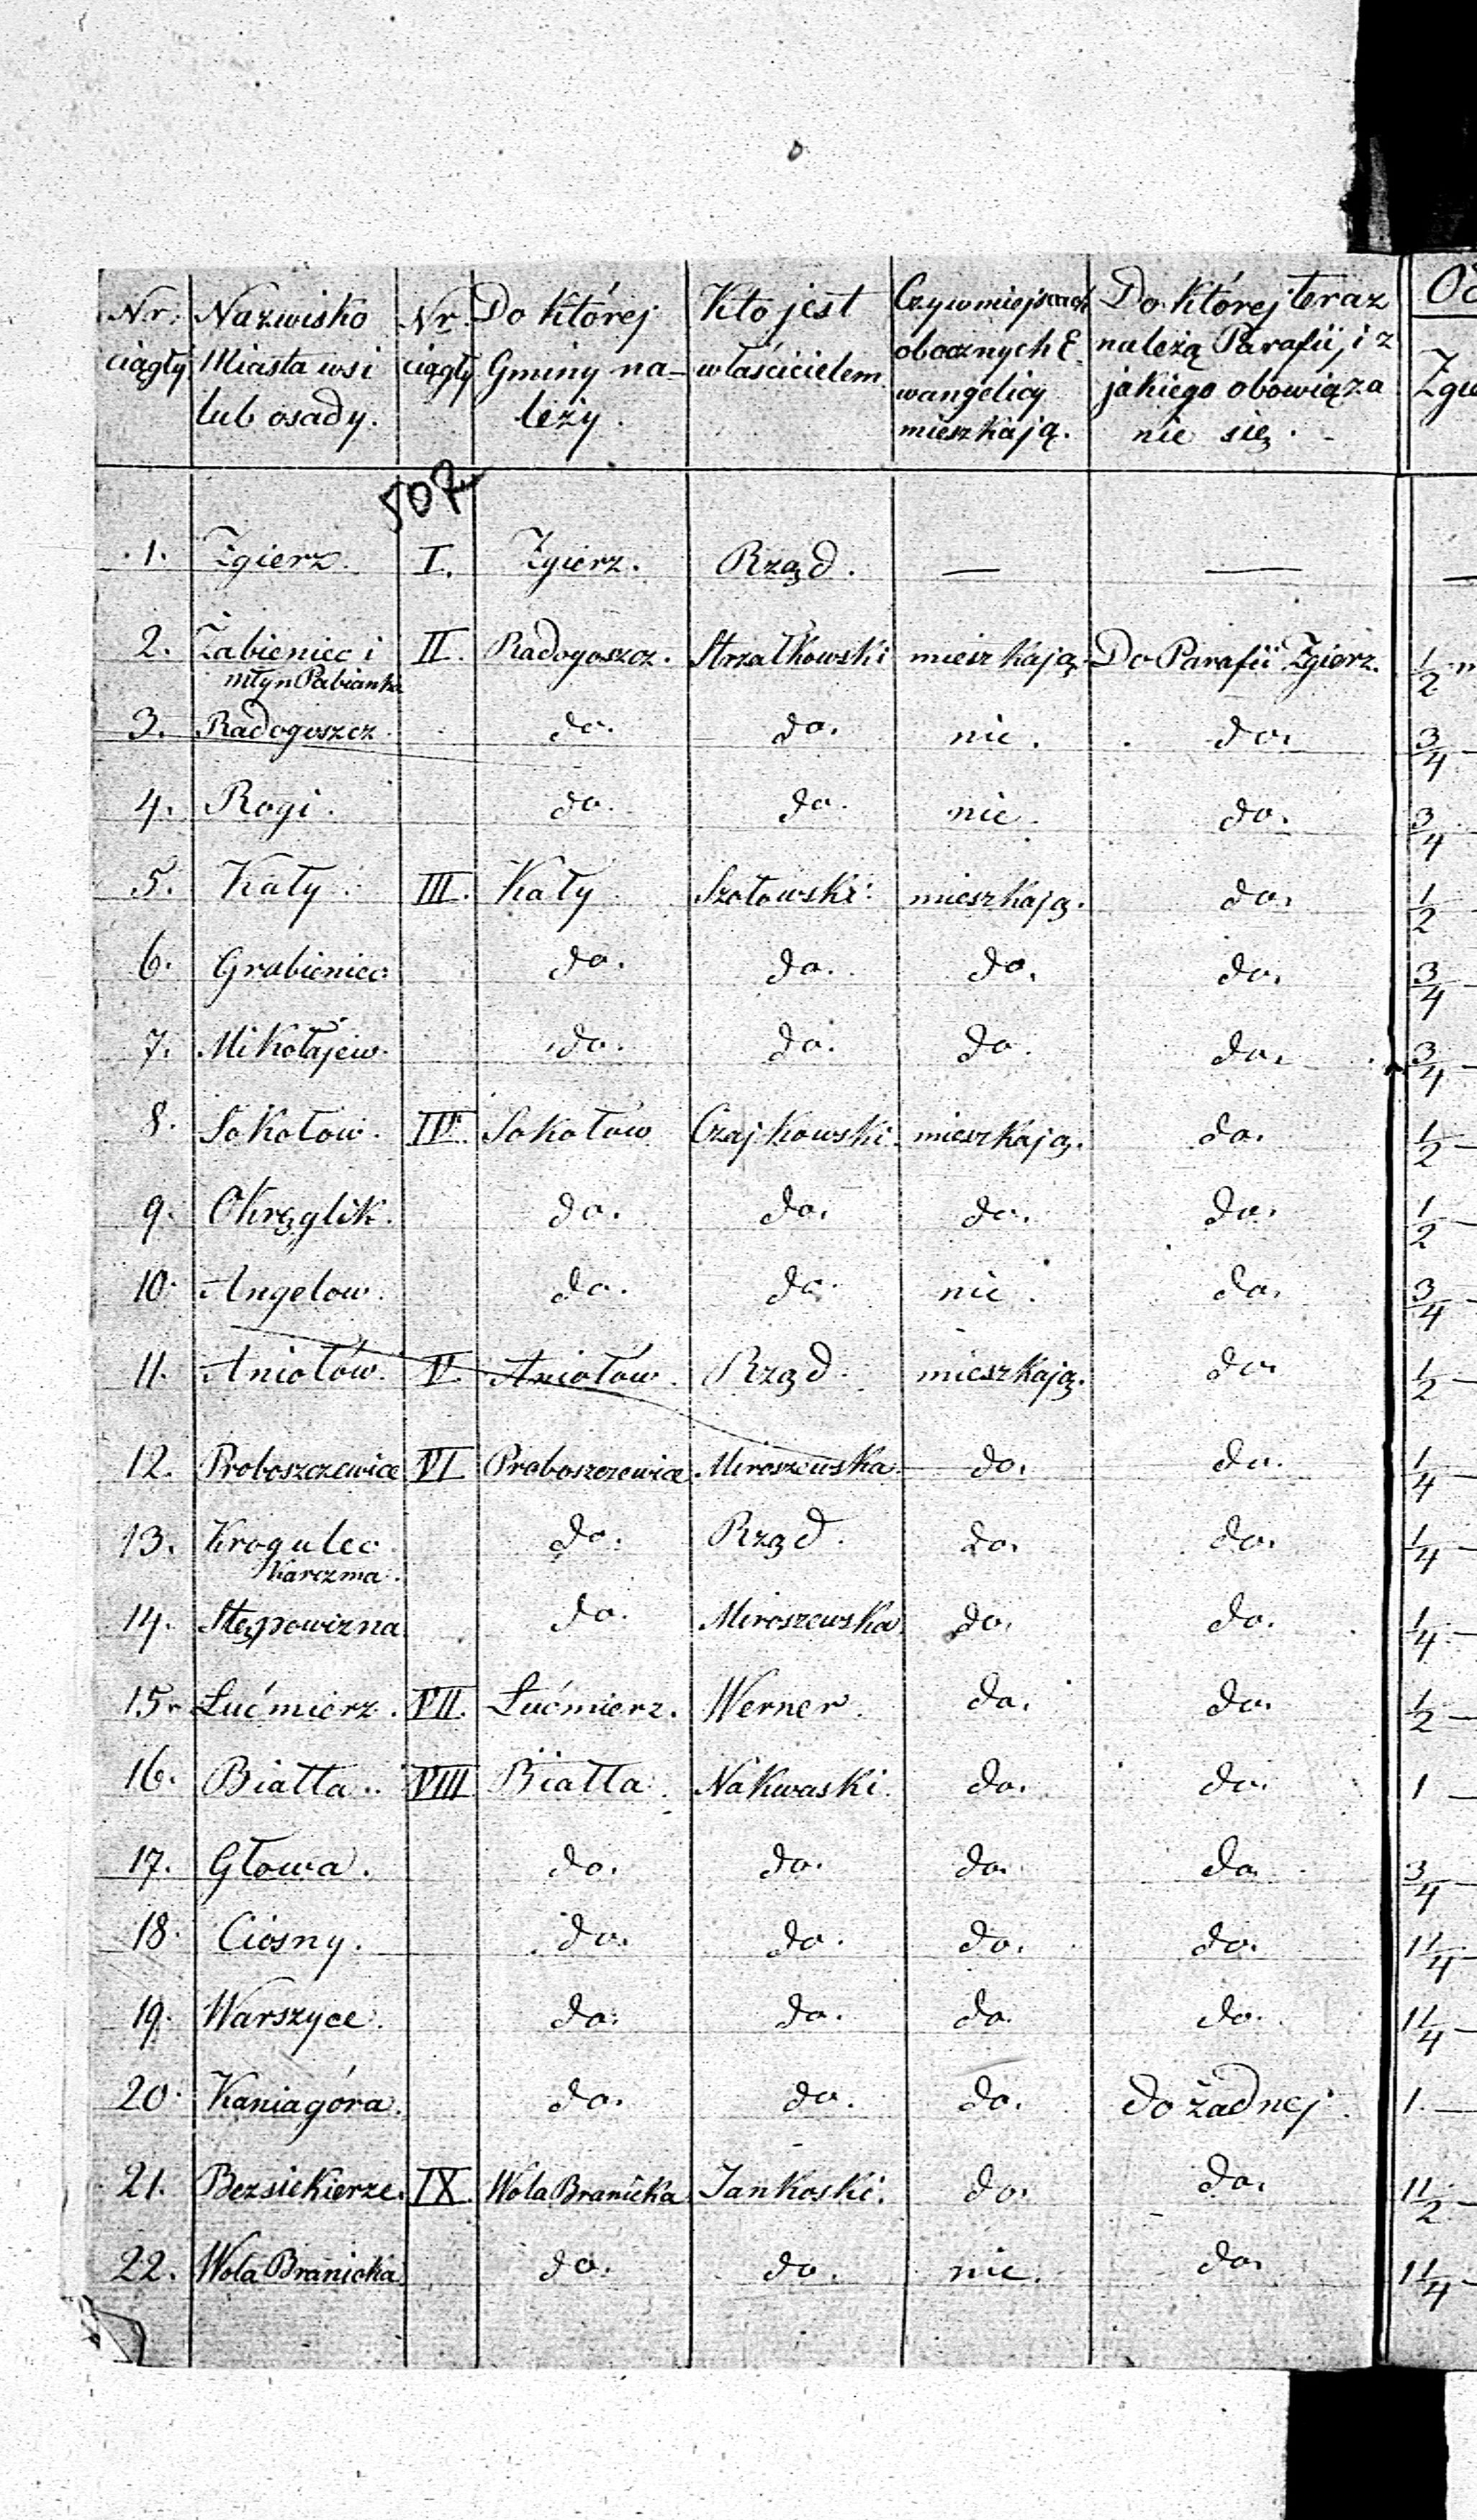 Nr: ciągły | Nazwisko Miasta wsi lub osady. | Nr. ciągły | Do Którey Gminy na- leży. | Kto jest właścicielem | Czy w miejscach obocznych E- wangelicy mieszkają. | Do Której teraz należą Parafii, i z jakiego obowiąza nie się. | Od Zgie
507
1. Zgierz. I. Zgierz. Rząd. — —
2. Żabieniec i II. Radogoszcz. Strzałkowski mieszkają. Do Parafii Zgierz. 1/2 m
młyn Pabianka
3. Radogoszcz do. do. nie. do. 3/4 –
4. Rogi. do. do. nie. do. 3/4 –
5. Kały III. Kały Szołowski mieszkają. do. 1/2 –
6. Grabieniec do. do. do. do. 3/4 –
7. Mikołajew. do. do. do. do. 3/4 –
8. Sokołow. IV. Sokołow Czajkowski. mieszkają. do. 1/2 –
9. Okręglik. do. do. do. do. 1/2 –
10. Angelow. do. do. nie. do. 3/4 –
11. Aniołów. V. Aniołów. Rząd. mieszkają. do. 1/2 –
12. Proboszczewice VI Proboszczewice Miroszewska. do. do. 1/4 –
13. Krogulec do. Rząd. do. do. 1/4 –
Karczma.
14. Stępowizna do. Miroszewska do. do. 1/4 –
15. Lućmierz. VII. Lućmierz. Werner. do. do. 1/2 –
16. Biatta. VIII Biatta. Nakwaski. do. do. 1 –
17. Głowa. do. do. do. do 3/4 –
18. Ciosny. do. do. do. do. 1 1/4 –
19. Warszyce. do. do. do. do. 1 1/4 –
20. Kaniagóra. do. do. do. do żadnej. 1. –
21. Bezsiekierze. IX. Wola Branicka Jankoski. do. do. 1 1/2 –
22. Wola Branicka do. do. nie. do. 1 1/4 –